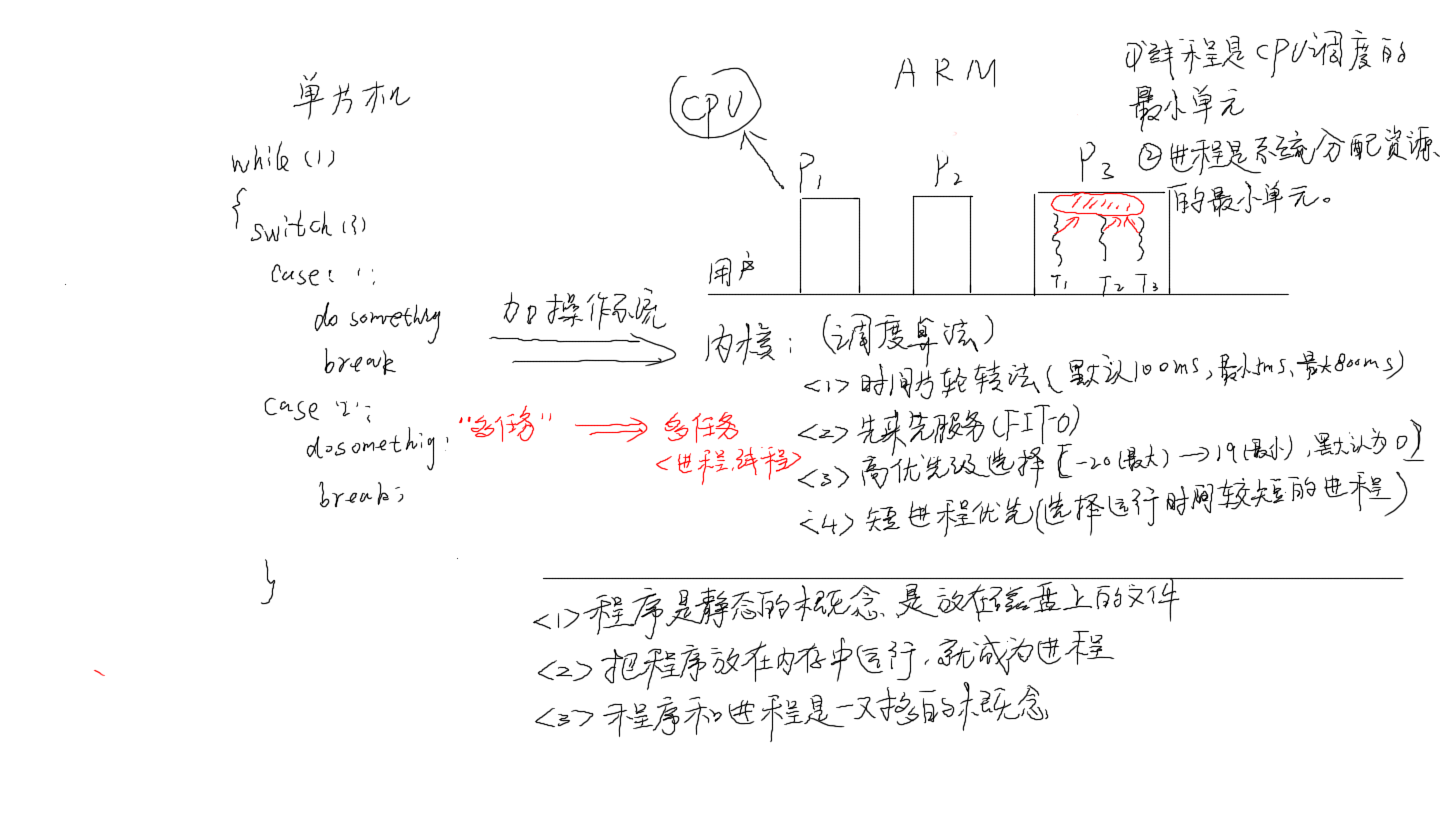 单片机
while (1)
{
switch (3)
case: 1:
do something
break
case '2':
dosomethig;
break;
}
加操作系统
"多任务"
多任务
<进程,线程>
ARM
CPU
P1
P2
P3
用户
T1 T2 T3
①线程是CPU调度的
最小单元
②进程是系统分配资源
的最小单元。
内核:(调度算法)
<1>时间片轮转法(默认100ms,最小5ms、最大800ms)
<2>先来先服务(FIFO)
<3>高优先级选择[-20(最大)→19(最小),默认为0]
<4>短进程优先(选择运行时间较短的进程)
<1>程序是静态的概念、是放在磁盘上的文件
<2>把程序放在内存中运行,就成为进程
<3>程序和进程是一对多的概念